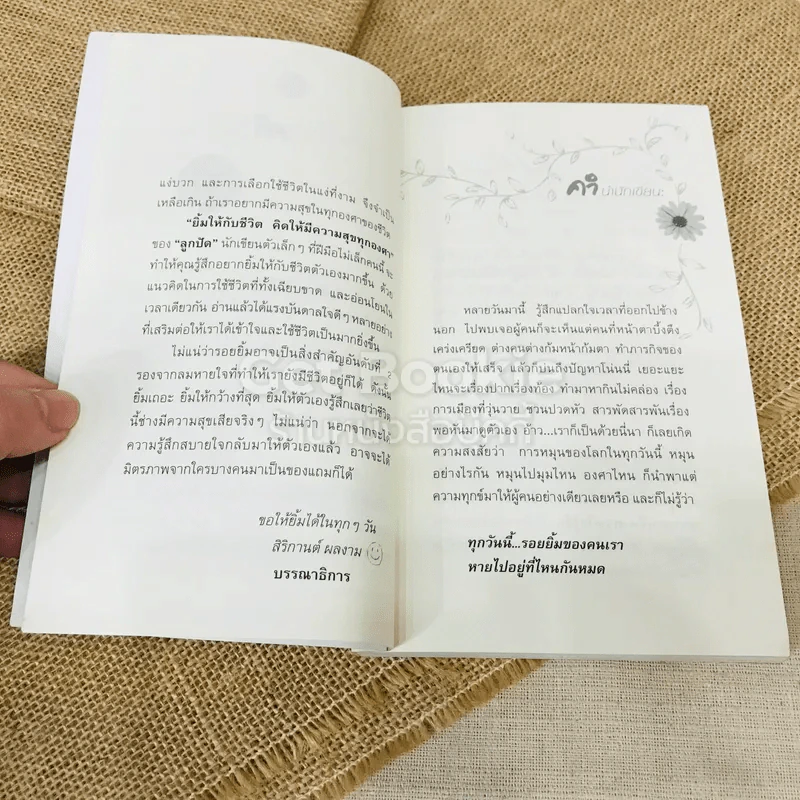 แง่บวก และการเลือกใช้ชีวิตในแง่ที่งาม จึงจำเป็น
เหลือเกิน ถ้าเราอยากมีความสุขในทุกองศาของชีวิต
“ยิ้มให้กับชีวิต คิดให้มีความสุขทุกองศา”
ของ “ลูกปัด” นักเขียนตัวเล็กๆ ที่ฝีมือไม่เล็กคนนี้ จะ
ทำให้คุณรู้สึกอยากยิ้มให้กับชีวิตตัวเองมากขึ้น ด้วย
แนวคิดในการใช้ชีวิตที่ทั้งเฉียบขาด และอ่อนโยนใน
เวลาเดียวกัน อ่านแล้วได้แรงบันดาลใจดีๆ หลายอย่าง
ที่เสริมต่อให้เราได้เข้าใจและใช้ชีวิตเป็นมากยิ่งขึ้น
ไม่แน่ว่ารอยยิ้มอาจเป็นสิ่งสำคัญอันดับที่ 2
รองจากลมหายใจที่ทำให้เรายังมีชีวิตอยู่ก็ได้ ดังนั้น
ยิ้มเถอะ ยิ้มให้กว้างที่สุด ยิ้มให้ตัวเองรู้สึกเลยว่าชีวิต
นี้ช่างมีความสุขเสียจริงๆ ไม่แน่ว่า นอกจากจะได้
ความรู้สึกสบายใจกลับมาให้ตัวเองแล้ว อาจจะได้
มิตรภาพจากใครบางคนมาเป็นของแถมก็ได้
ขอให้ยิ้มได้ในทุกๆ วัน
สิริกานต์ ผลงาม
บรรณาธิการ
คำนำนักเขียน
หลายวันมานี้ รู้สึกแปลกใจเวลาที่ออกไปข้าง
นอก ไปพบเจอผู้คนก็จะเห็นแต่คนที่หน้าตาบึ้งตึง
เคร่งเครียด ต่างคนต่างก้มหน้าก้มตา ทำภารกิจของ
ตนเองให้เสร็จ แล้วก็บ่นถึงปัญหาโน่นนี่ เยอะแยะ
ไหนจะเรื่องปากเรื่องท้อง ทำมาหากินไม่คล่อง เรื่อง
การเมืองที่วุ่นวาย ชวนปวดหัว สารพัดสารพันเรื่อง
พอหันมาดูตัวเอง อ้าว...เราก็เป็นด้วยนี่นา ก็เลยเกิด
ความสงสัยว่า การหมุนของโลกในทุกวันนี้ หมุน
อย่างไรกัน หมุนไปมุมไหน องศาไหน ก็นำพาแต่
ความทุกข์มาให้ผู้คนอย่างเดียวเลยหรือ และก็ไม่รู้ว่า
ทุกวันนี้...รอยยิ้มของคนเรา
หายไปอยู่ที่ไหนกันหมด